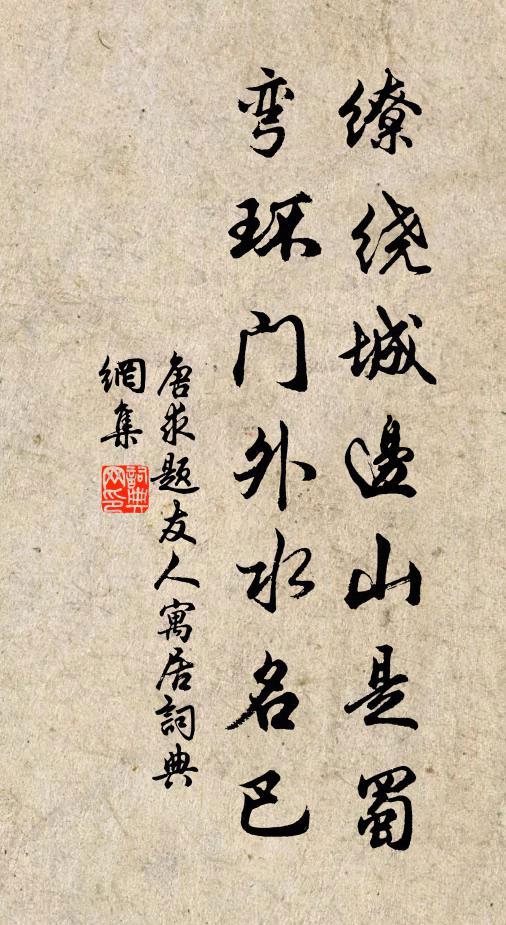 缭绕城邊山是蜀
弯环门外水名巴
唐求题友人寓居詞典
網集
詞典
网印